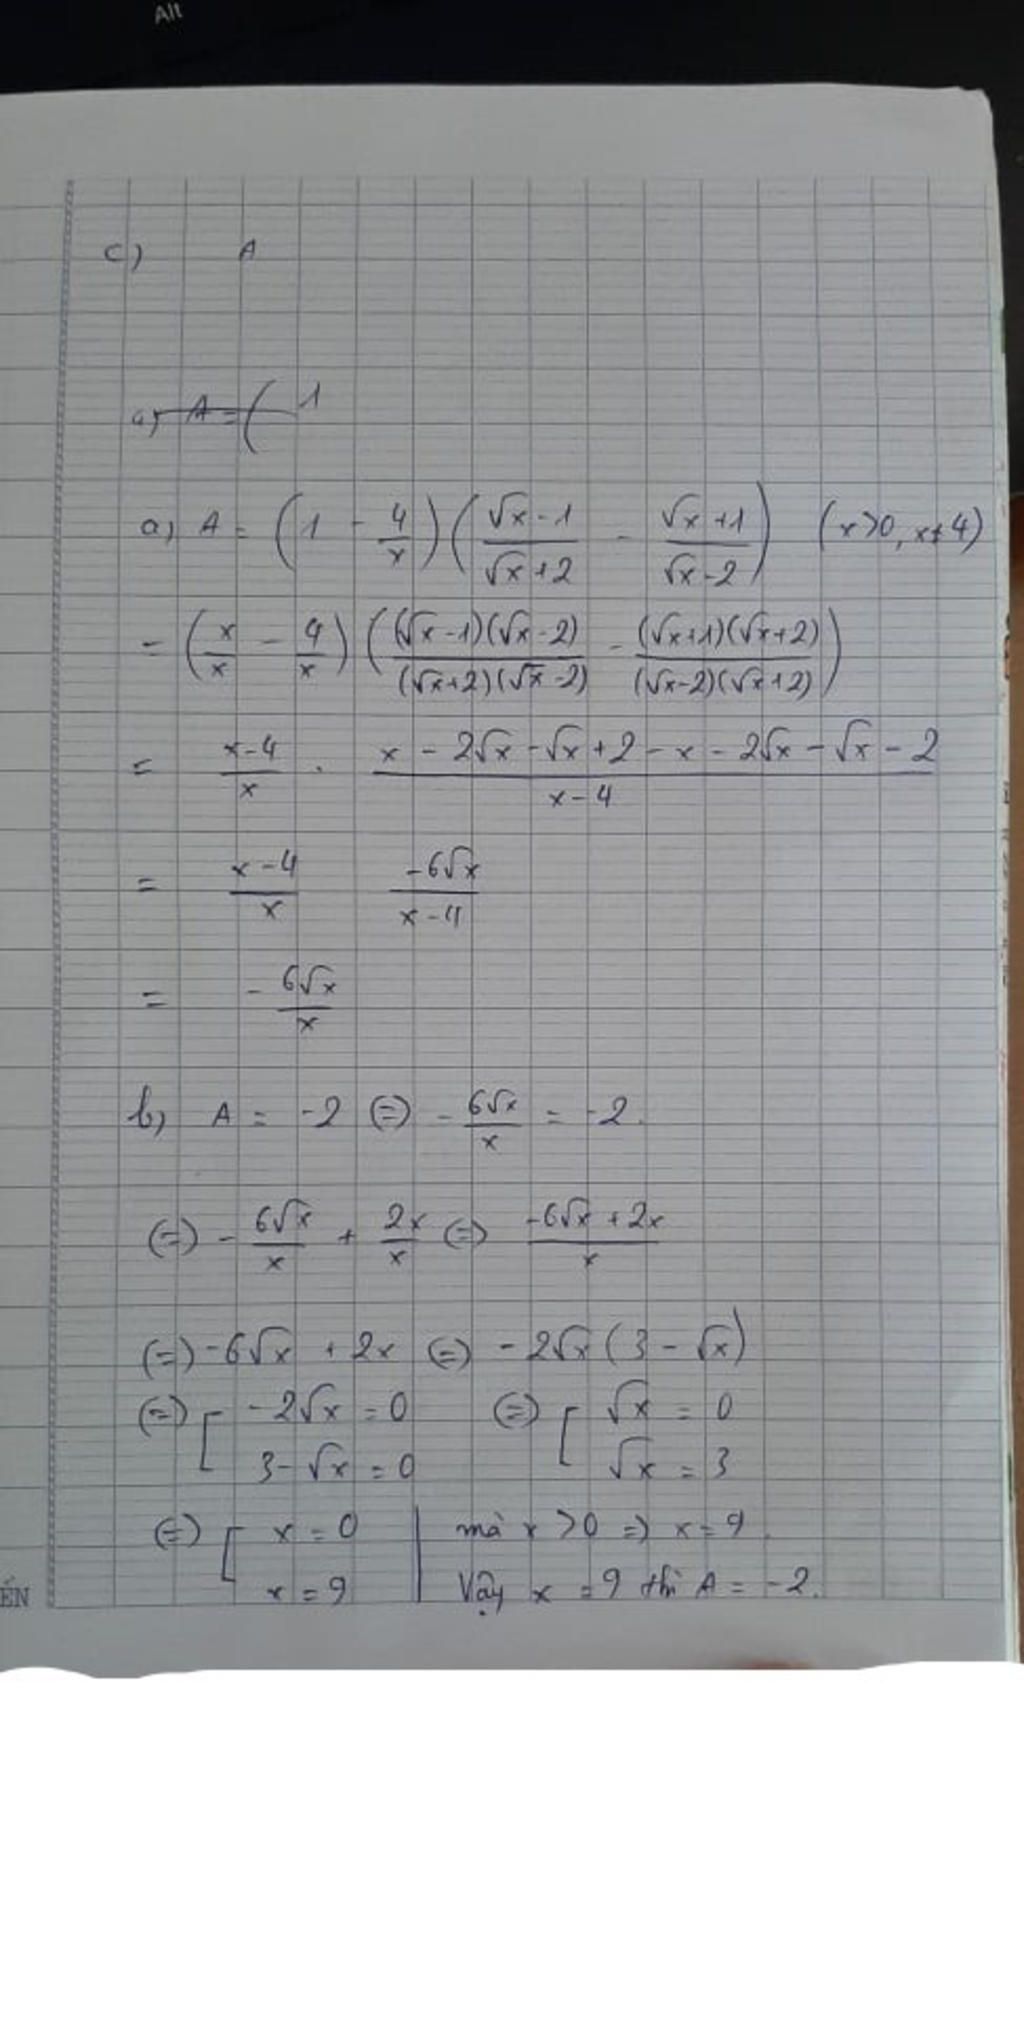 Alt
c) A
a) A = ( 1
a) A = (1 - 4/x)((√x-1)/(√x+2) - (√x+1)/(√x-2)) (x>0, x≠4)
= (x/x - 4/x)(((√x-1)(√x-2))/((√x+2)(√x-2)) - ((√x+1)(√x+2))/((√x-2)(√x+2)))
= (x-4)/x . (x - 2√x - √x + 2 - x - 2√x - √x - 2)/(x-4)
= (x-4)/x (-6√x)/(x-4)
= - 6√x/x
b) A = -2 (=) - 6√x/x = -2.
(=) - 6√x/x + 2x/x (=) (-6√x + 2x)/x
(=) -6√x + 2x (=) -2√x (3 - √x)
(=) [ -2√x = 0 (=) [ √x = 0
3-√x = 0 √x = 3
(=) [ x = 0 | mà x > 0 => x = 9.
x = 9 | Vậy x = 9 thì A = -2.
ẾN